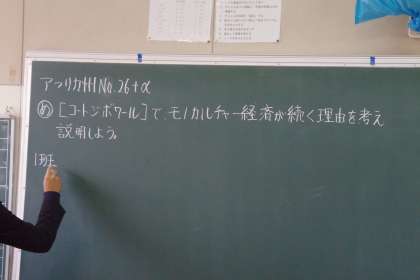 アフリカ州No.26+α
め [コートジボワール]で、モノカルチャー経済が続く理由を考え
説明しよう。
1班